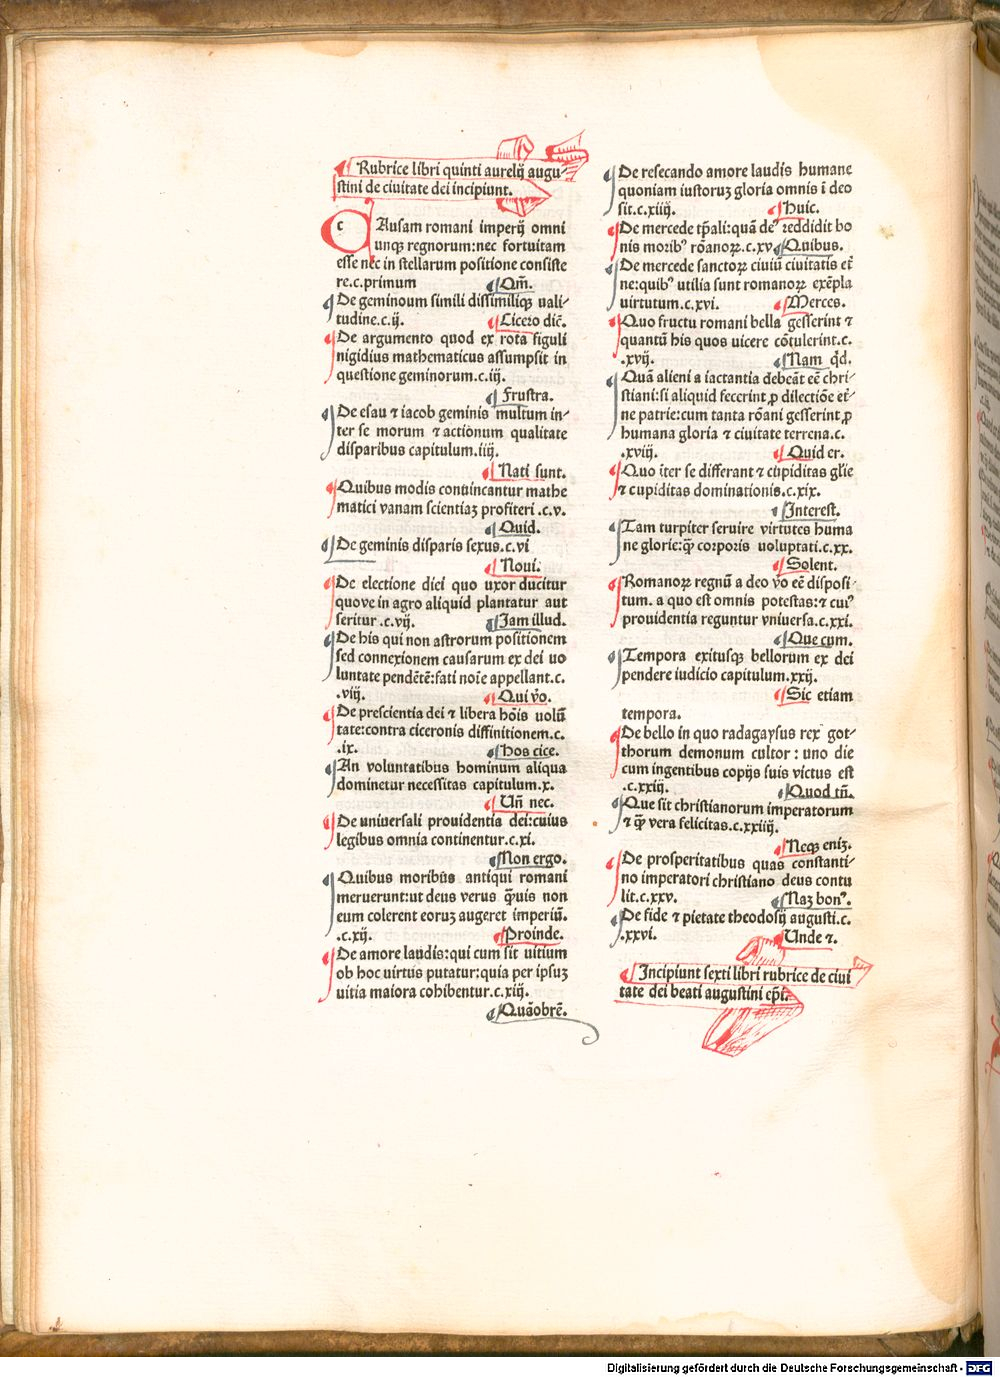 Rubrice libri quinti aurelij augu-
stini de ciuitate dei incipiunt.
CAusam romani imperij omni
unqꝫ regnorum:nec fortuitam
esse nec in stellarum positione consiste
re.c.primum Qm̄.
De geminoum simili dissimiliqꝫ uali-
tudine.c.ij. Cicero dic̄.
De argumento quod ex rota figuli
nigidius mathematicus assumpsit in
questione geminorum.c.iij.
Frustra.
De esau ⁊ iacob geminis multum in-
ter se morum ⁊ actionum qualitate
disparibus capitulum.iiij.
Nati sunt.
Quibus modis conuincantur mathe
matici vanam scientiaꝫ profiteri .c.v.
Quid.
De geminis disparis sexus.c.vi
Noui.
De electione diei quo uxor ducitur
quove in agro aliquid plantatur aut
seritur .c.vij. Jam illud.
De his qui non astrorum positionem
sed connexionem causarum ex dei uo
luntate pendētē:fati noīe appellant.c.
.viij. Qui v̄o.
De prescientia dei ⁊ libera hōis uolū
tate:contra ciceronis diffinitionem.c.
.ix. Hos cice.
An voluntatibus hominum aliqua
dominetur necessitas capitulum.x.
Un̄ nec.
De uniuersali prouidentia dei:cuius
legibus omnia continentur.c.xi.
Non ergo.
Quibus moribus antiqui romani
meruerunt:ut deus verus q̄uis non
eum colerent eoruꝫ augeret imperiū.
.c.xij. Proinde.
De amore laudis:qui cum sit uitium
ob hoc uirtus putatur:quia per ipsuꝫ
uitia maiora cohibentur.c.xiij.
Quāobrē.
De resecando amore laudis humane
quoniam iustoruꝫ gloria omnis ī deo
sit.c.xiiij. Huic.
De mercede tp̄ali:quā deꝰ reddidit bo
nis moribꝰ rōanoꝝ.c.xv Quibus.
De mercede sanctoꝝ ciuiū ciuitatis et̄
ne:quibꝰ utilia sunt romanoꝝ exēpla
uirtutum.c.xvi. Merces.
Quo fructu romani bella gesserint ⁊
quantū his quos uicere cōtulerint.c.
.xvij. Nam q̄d.
Quā alieni a iactantia debeāt eē chri-
stiani:si aliquid fecerint ꝓ dilectiōe et̄-
ne patrie:cum tanta rōani gesserint ꝓ
humana gloria ⁊ ciuitate terrena.c.
.xviij. Quid er.
Quo īter se differant ⁊ cupiditas gl̄ie
⁊ cupiditas dominationis.c.xix.
Interest.
Tam turpiter seruire virtutes huma
ne glorie:qꝫ corporis uoluptati.c.xx.
Solent.
Romanoꝝ regnū a deo v̄o eē disposi-
tum. a quo est omnis potestas:⁊ cuiꝰ
prouidentia reguntur vniuersa.c.xxi.
Que cum.
Tempora exitusqꝫ bellorum ex dei
pendere iudicio capitulum.xxij.
Sic etiam
tempora.
De bello in quo radagaysus rex got-
thorum demonum cultor : uno die
cum ingentibus copijs suis victus est
.c.xxiij. Quod tn̄.
Que sit christianorum imperatorum
⁊ qꝫ vera felicitas.c.xxiiij.
Neqꝫ eniꝫ.
De prosperitatibus quas constanti-
no imperatori christiano deus contu
lit.c.xxv. Naꝫ bonꝰ.
De fide ⁊ pietate theodosij augusti.c.
.xxvi. Unde ⁊.
Incipiunt sexti libri rubrice de ciui
tate dei beati augustini ep̄i.
Digitalisierung gefördert durch die Deutsche Forschungsgemeinschaft - DFG